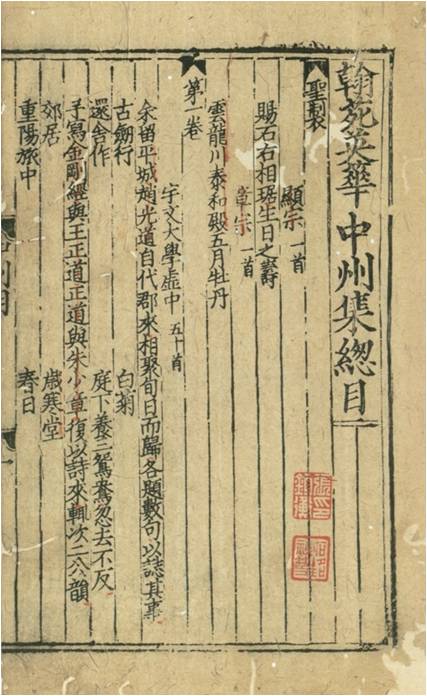 翰苑英華中州集總目
聖製
顯宗 一首
賜石右相琚生日之壽
章宗 一首
雲龍川泰和殿五月牡丹
第一卷
宇文大學虛中 五十首
余留平城趙光道自代郡來相聚旬日而歸各題數句以誌其事
古劒行 白菊
還舍作 庭下養三鴛鴦忽去不反
手寫金剛經與王正道正道與朱少章復以詩來輒次二公韻
郊居 歲寒堂
重陽旅中 春日